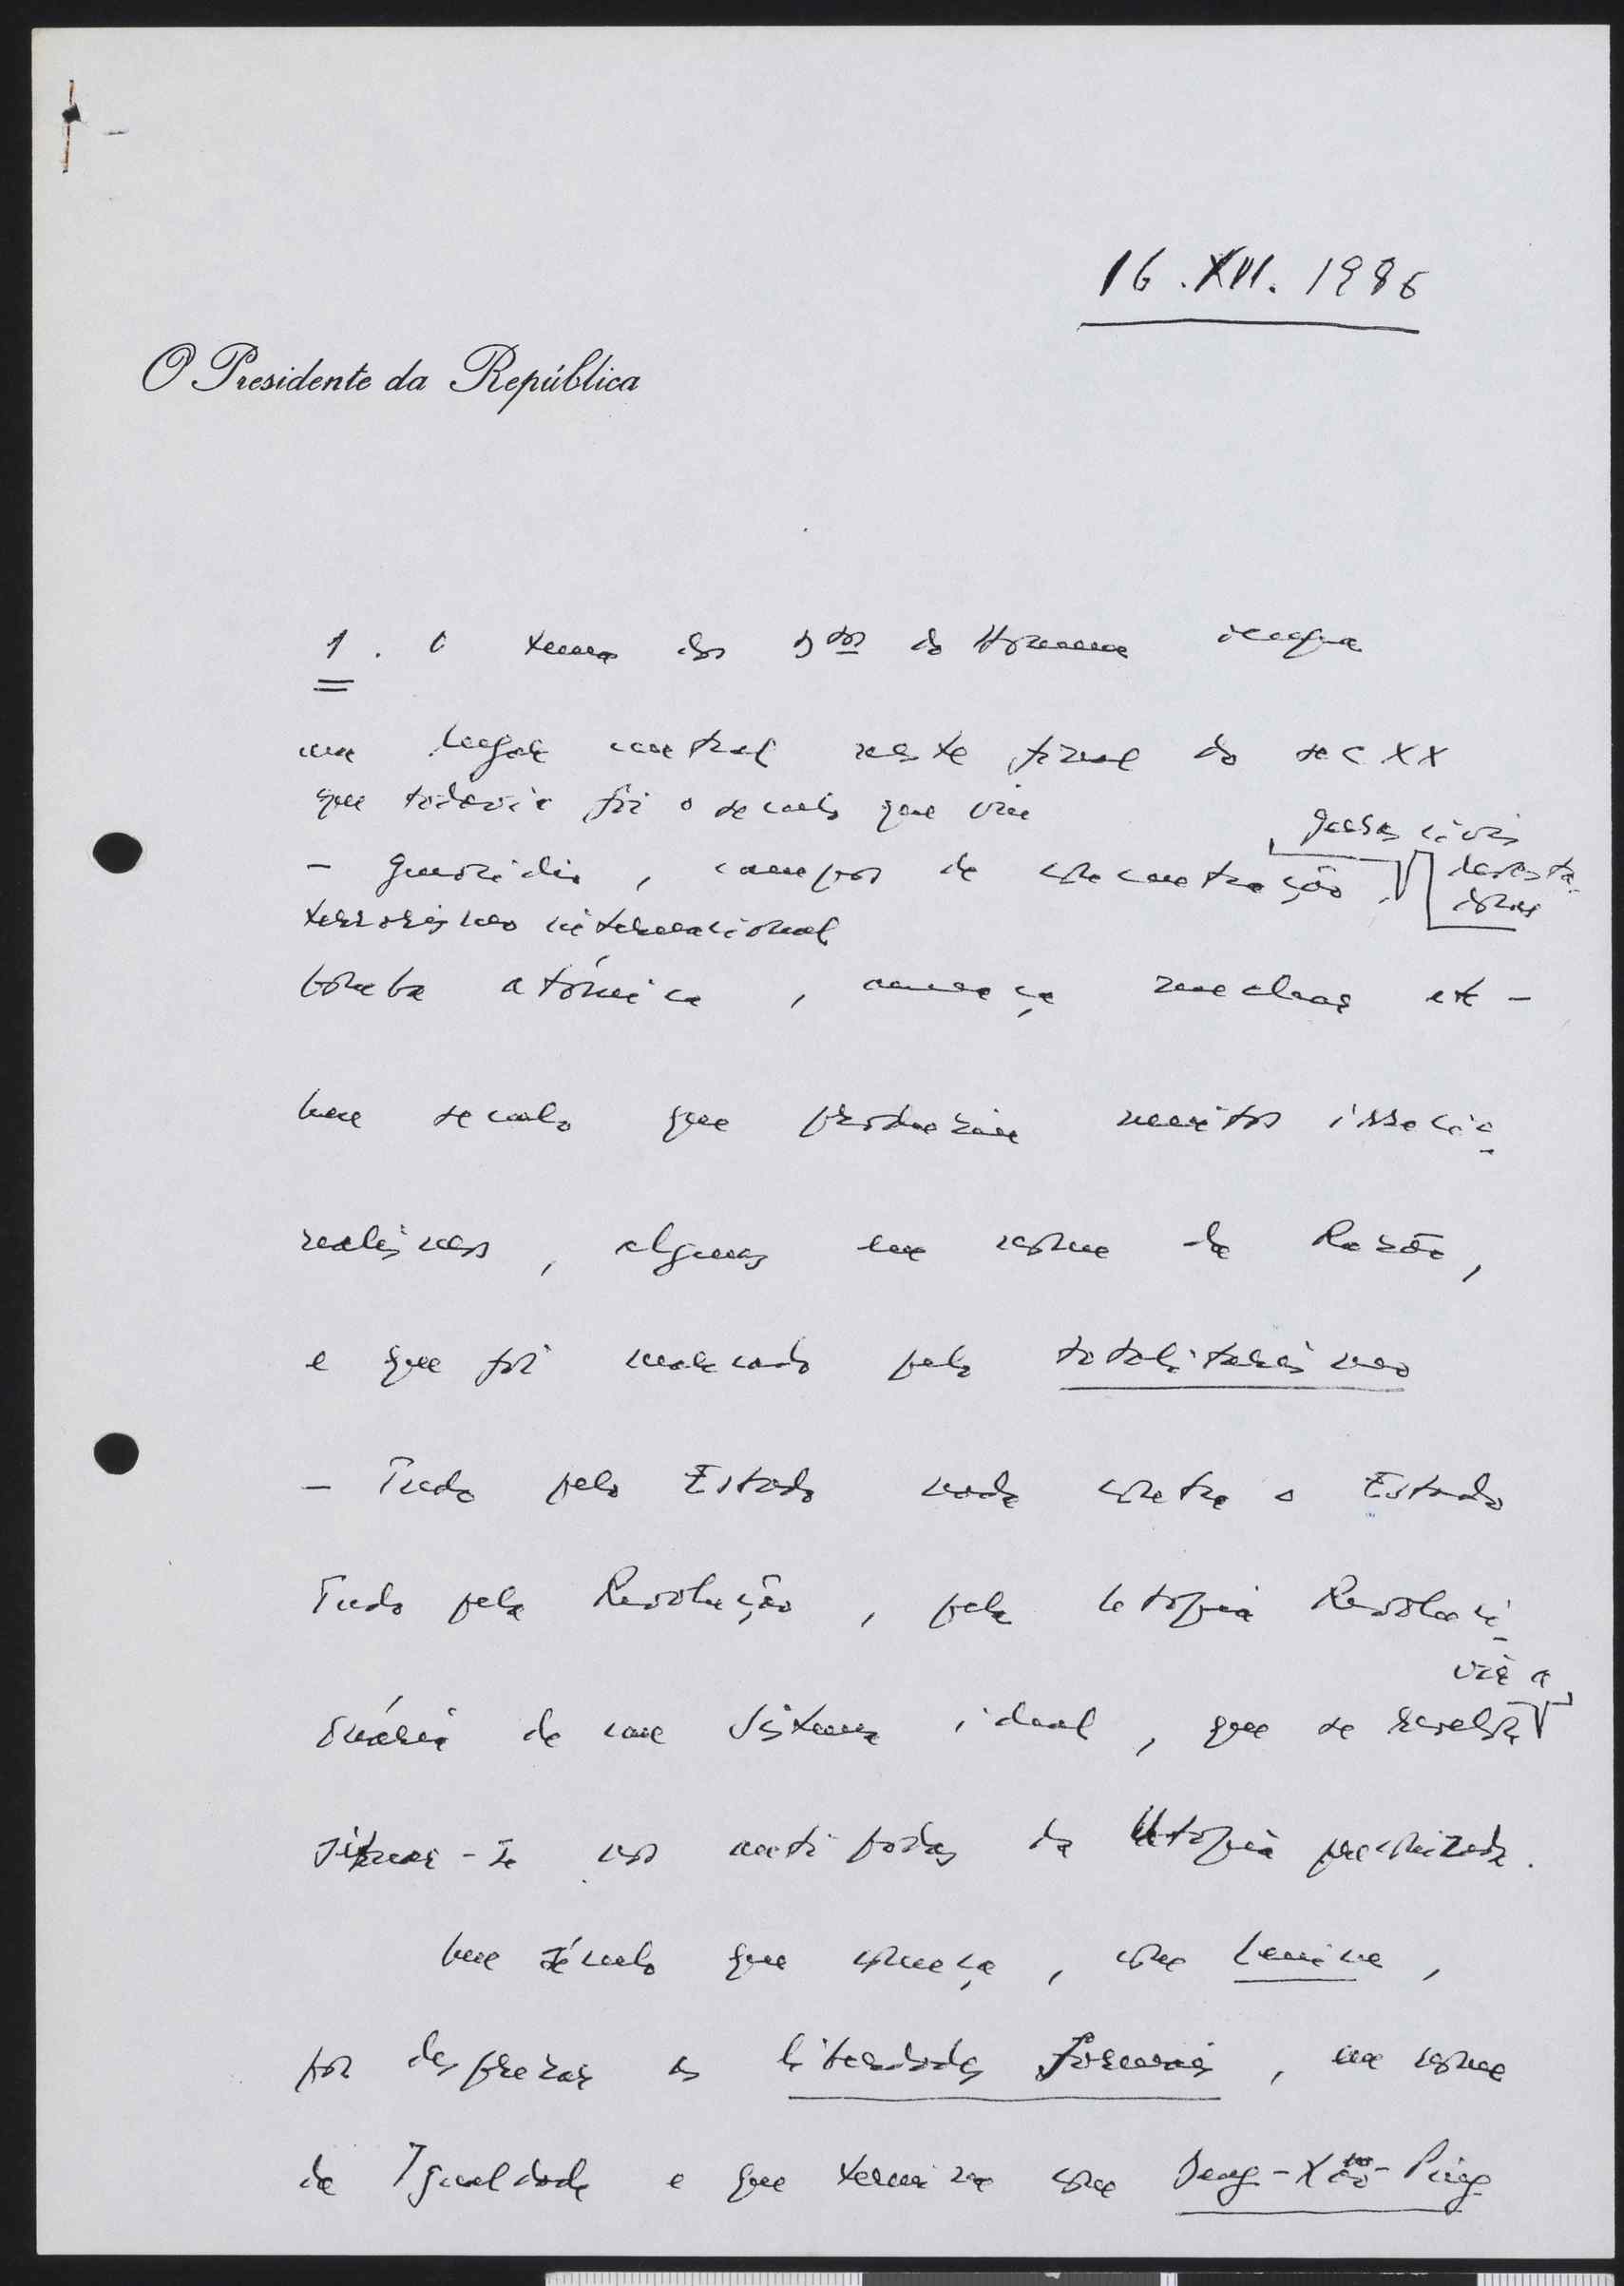 16.XII.1986
O Presidente da República
1. O tema dos Dtos do Homem ocupa
um lugar central neste final do sec XX
que todavia foi o seculo que viu
guerras civis
- genocidio, campos de concentração,
devasta-
doras
terrorismo internacional
bomba atómica, ameaça nuclear etc -
Um seculo que produziu muitos irracio-
nalismos, alguns em nome da Razão,
e que foi marcado pelo totalitarismo
- Tudo pelo Estado nada contra o Estado
Tudo pela Revolução, pela Utopia Revoluci-
vir a
onária de um sistema ideal, que se revelou
situar-se nos antipodas da Utopia preconizada.
Um século que começa, com Lenine,
por desprezar as liberdades formais, em nome
da Igualdade e que termina com Deng-Xiao-Ping